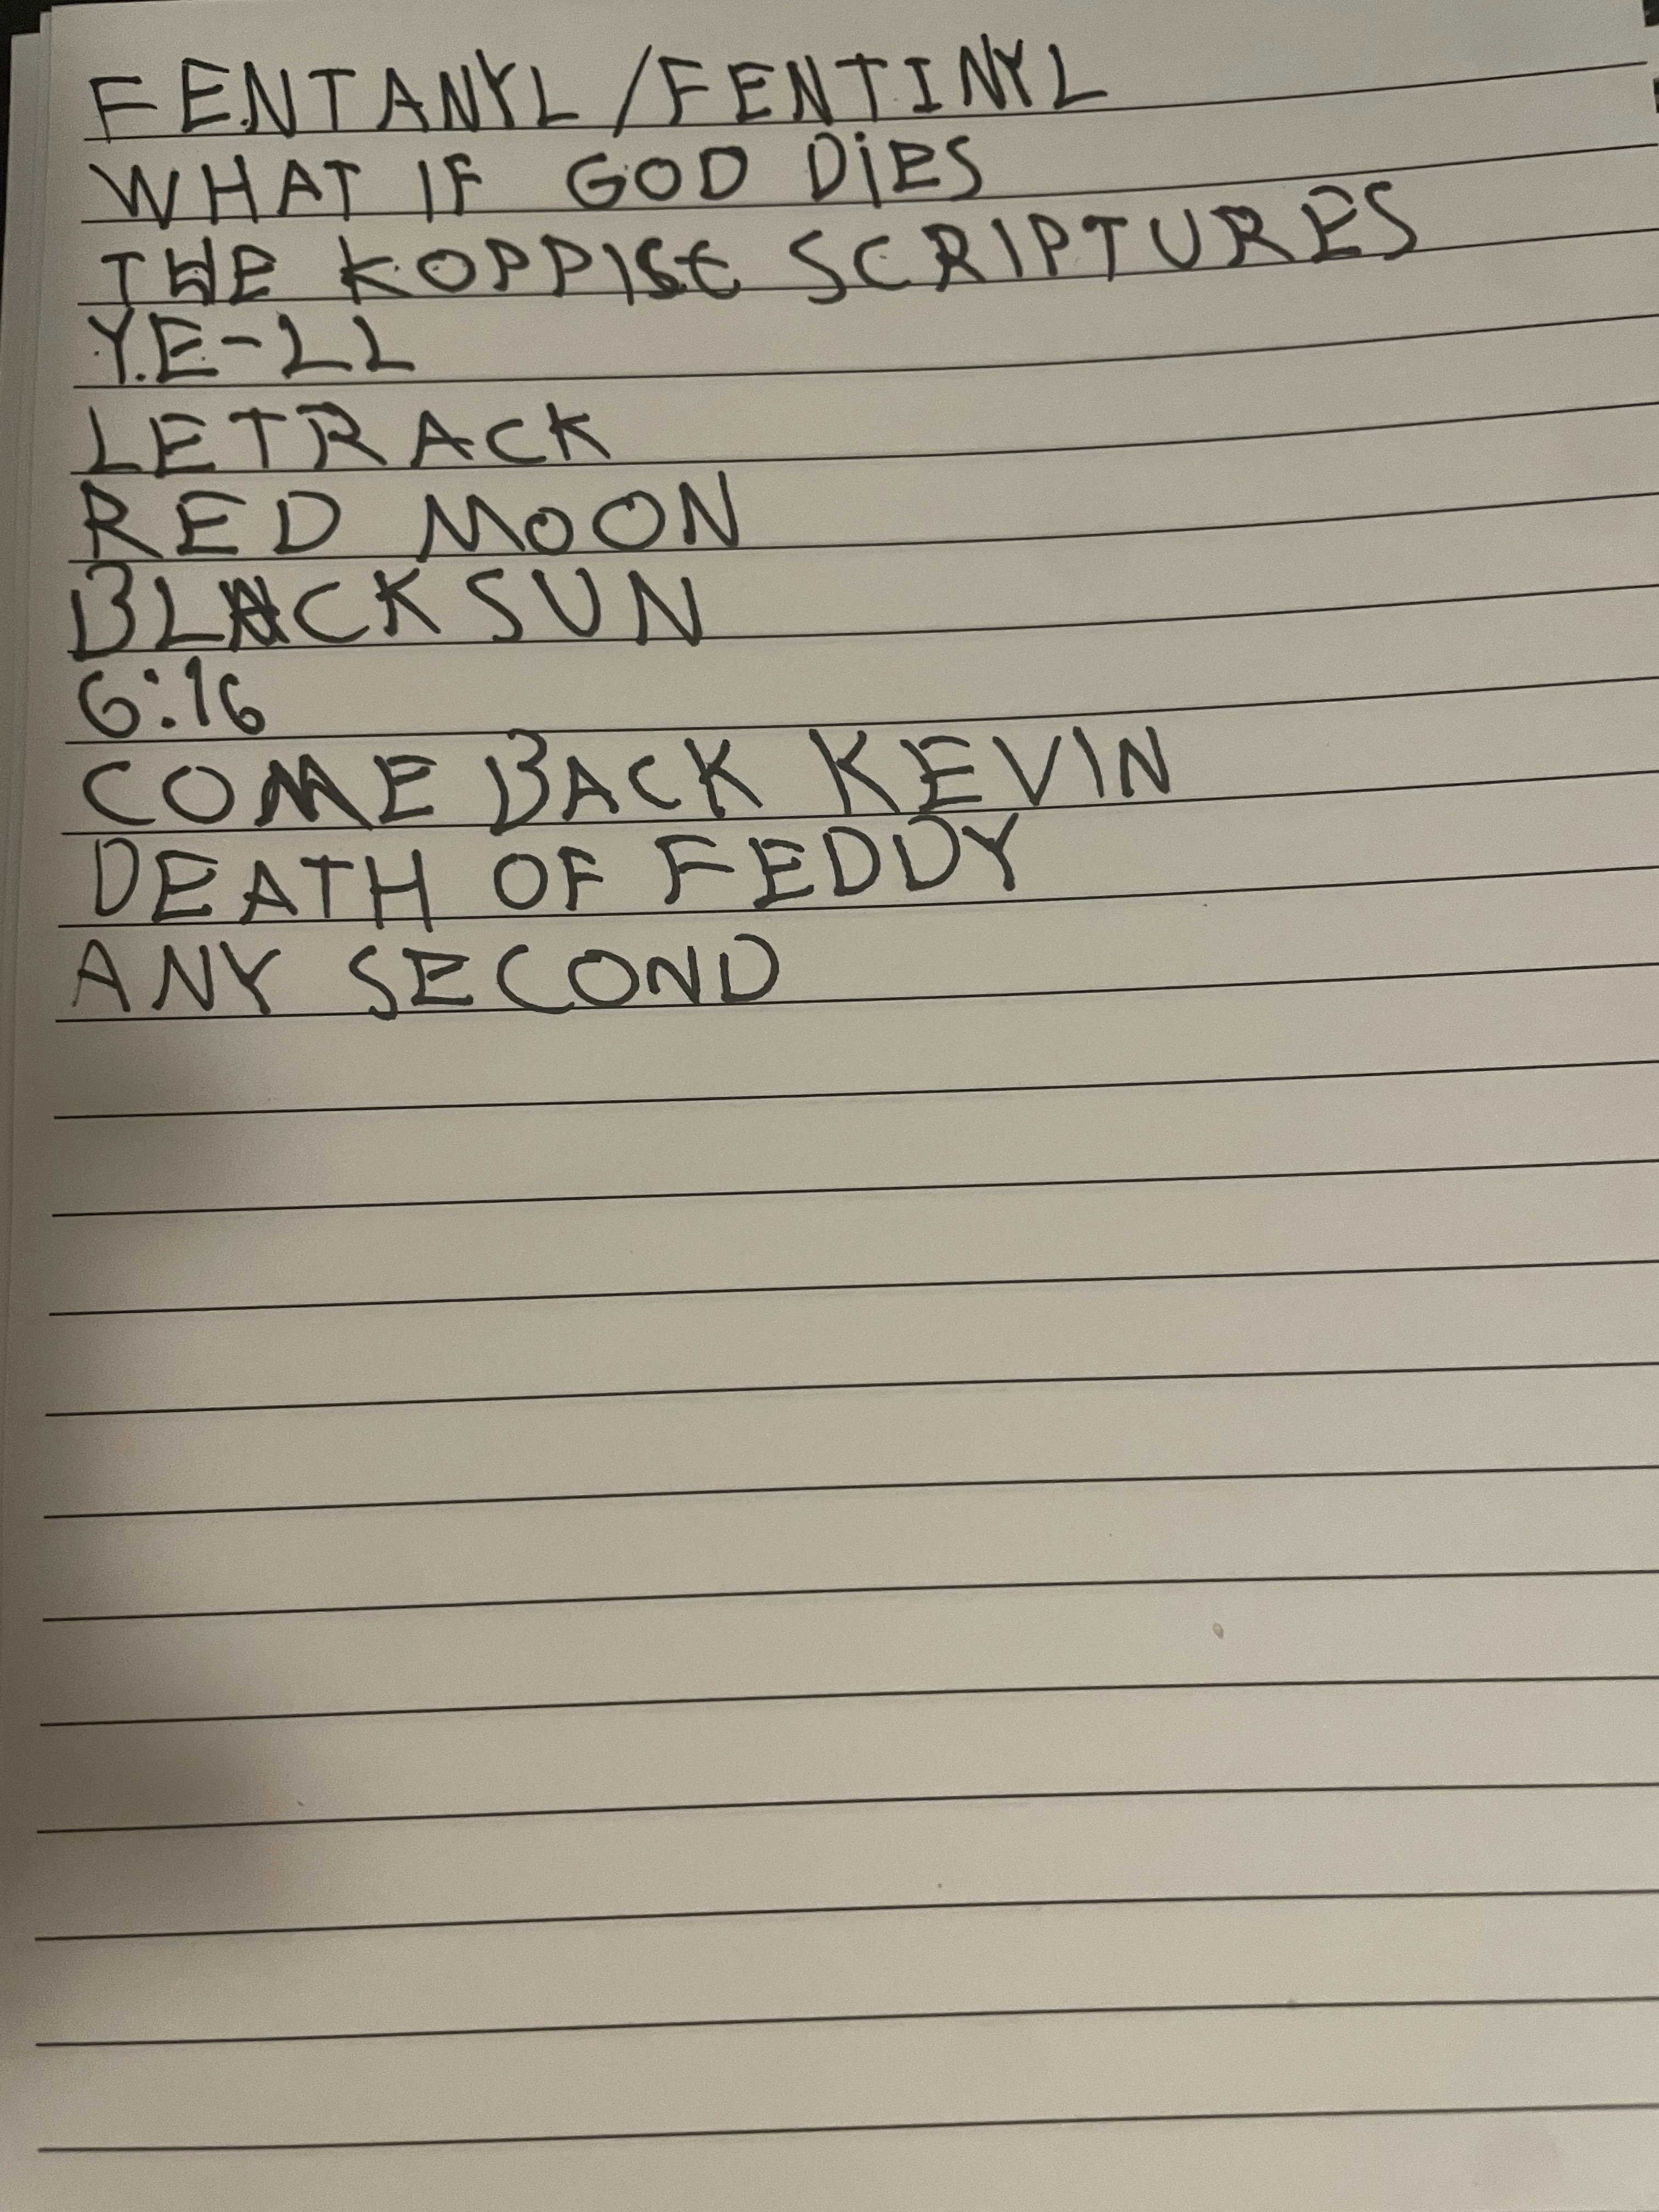 FENTANYL/FENTINYL
WHAT IF GOD DiES
THE KOPPISE SCRIPTURES
Y.E-LL
LETRACK
RED MOON
BLACK SUN
6:16
COME BACK KEVIN
DEATH OF FEDDY
ANY SECOND